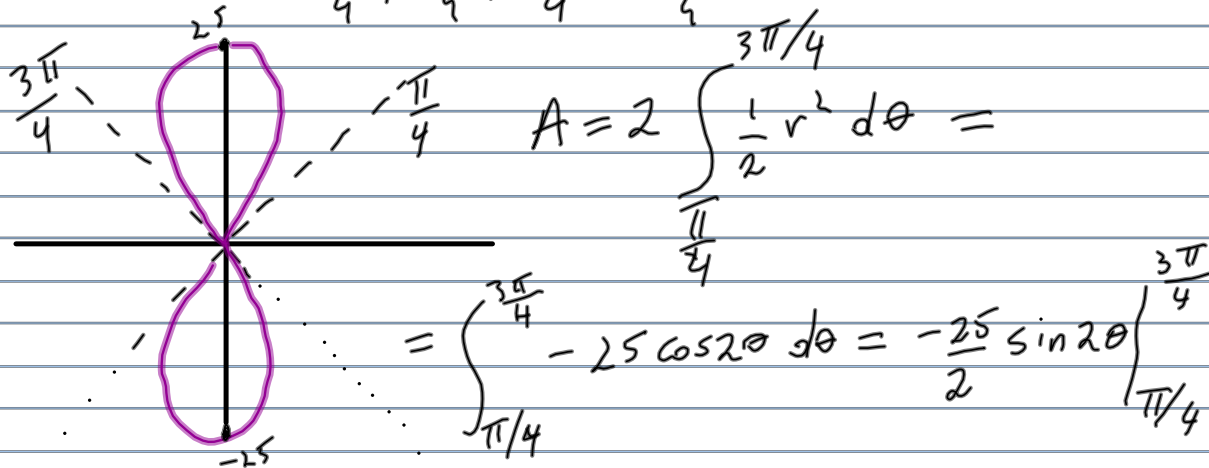 4 4 4 4
25
3π/4
π/4
A = 2 ∫_{π/4}^{3π/4} 1/2 r² dθ =
= ∫_{π/4}^{3π/4} -25 cos2θ dθ = -25/2 sin2θ |_{π/4}^{3π/4}
-25